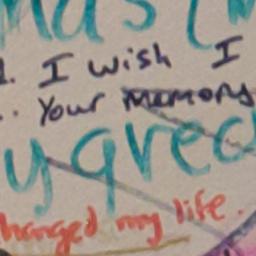 1. I wish I
Your Memory
y grea
hanged my life.